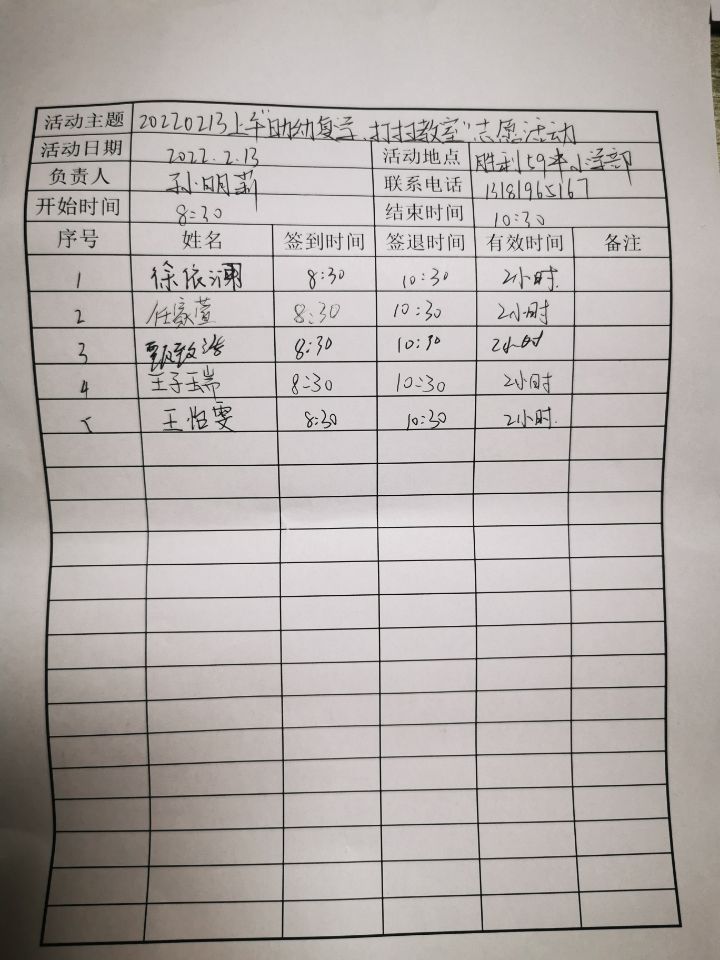 活动主题 20220213上午"助幼复学、打扫教室"志愿活动
活动日期 2022.2.13 活动地点 胜利59中小学部
负责人 孙明莉 联系电话 13181965167
开始时间 8:30 结束时间 10:30
序号 姓名 签到时间 签退时间 有效时间 备注
1 徐依 8:30 10:30 2小时
2 任家萱 8:30 10:30 2小时
3 甄致 8:30 10:30 2小时
4 王子瑞 8:30 10:30 2小时
5 王怡雯 8:30 10:30 2小时